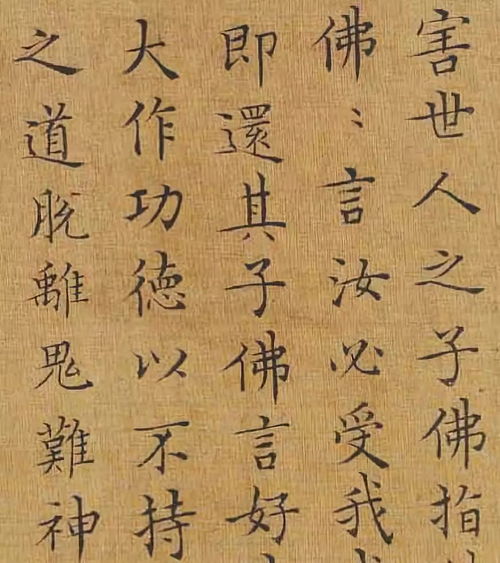 害世人之子佛指
佛〻言汝必受我
即還其子佛言好
大作功德以不持
之道脱離鬼難神